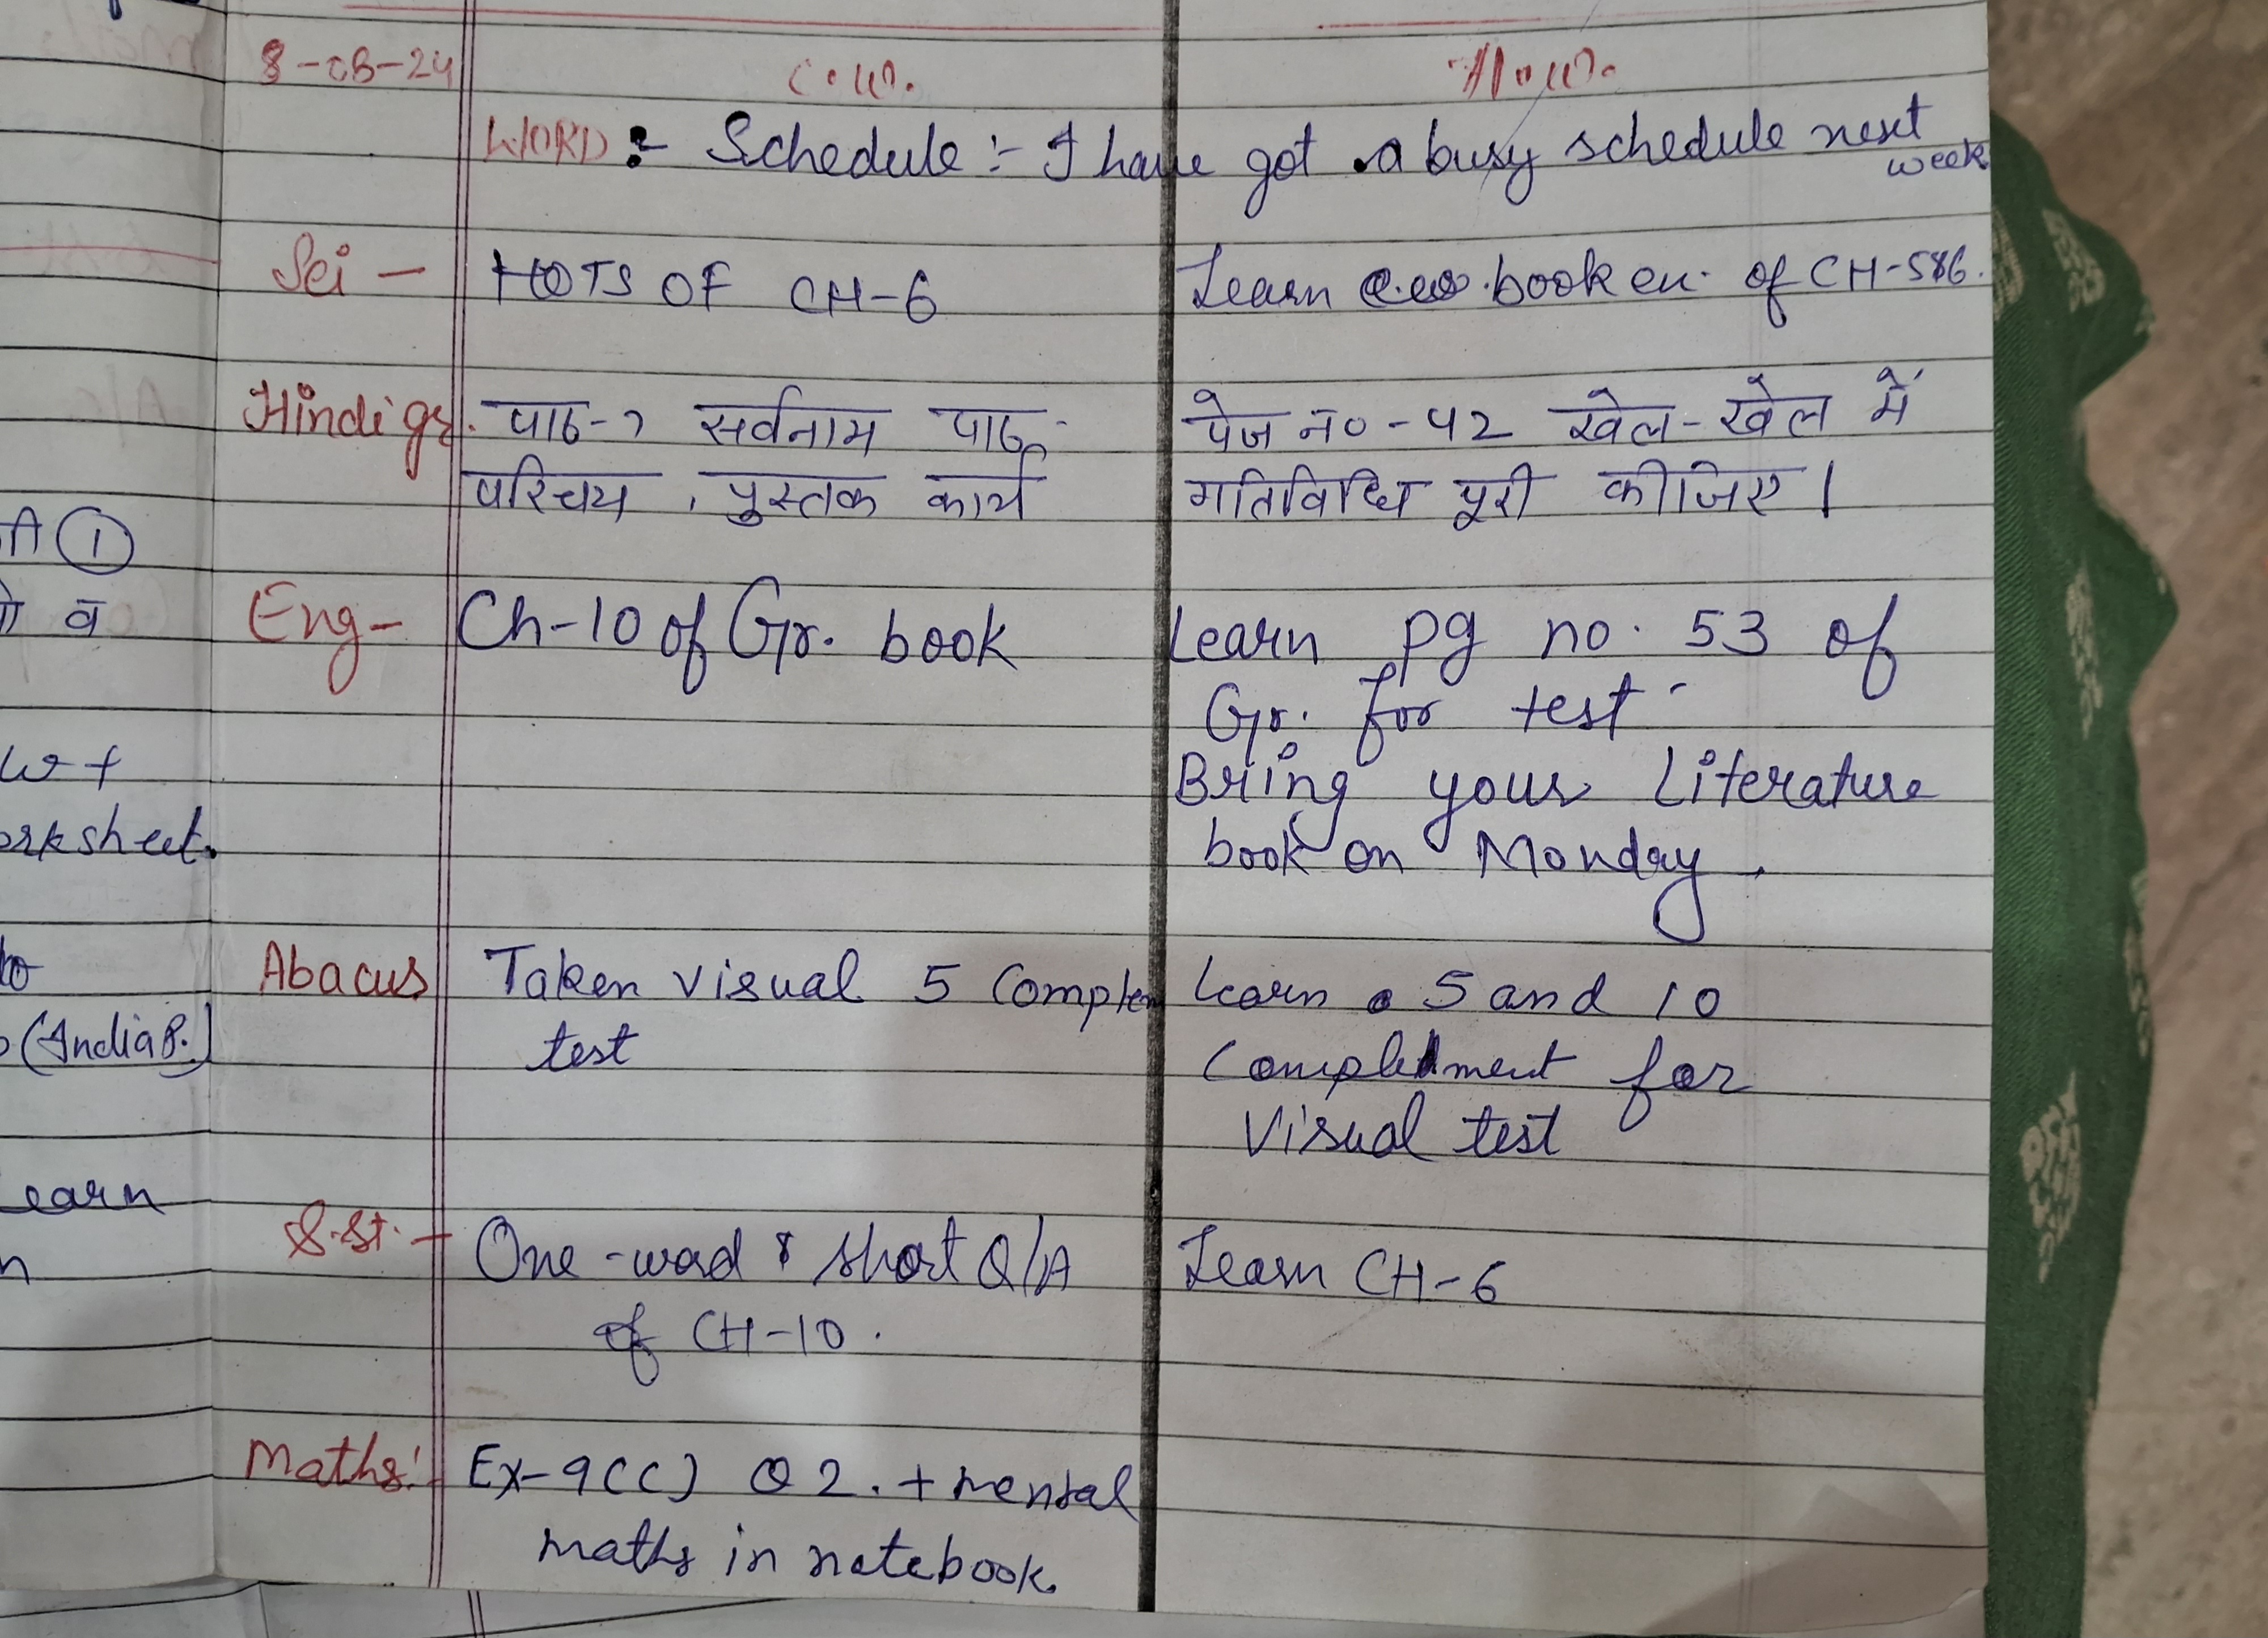 8-08-24 C.W. H.W.
WORD :- Schedule :- I have got a busy schedule next
week
Sci - HOTS OF CH-6 Learn book ex. of CH-5&6.
Hindi gr. पाठ-7 सर्वनाम पाठ Pेज न० -42 खेल-खेल में
परिचय , पुस्तक कार्य गतिविधि पूरी कीजिए।
Eng- Ch-10 of Gr. book Learn pg no. 53 of
Gr. for test
Bring your Literature
book on Monday.
Abacus Taken visual 5 Complem Learn 5 and 10
test Complement for
Visual test
S.St. - One-word & short Q/A Learn CH-6
of CH-10.
Maths:- Ex-9(C) Q2. + mental
maths in notebook.
नी 1
व
W +
orksheet.
to
(India P.)
earn
n